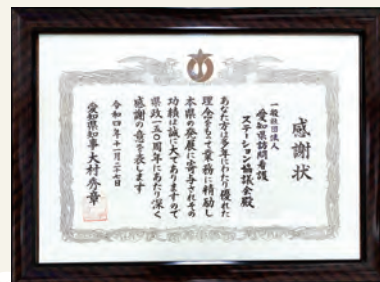 感謝状
一般社団法人
愛知県訪問看護
ステーション協議会殿
あなた方は多年にわたり優れた
理念をもって業務に精励し
本県の発展に寄与されその
功績は誠に大でありますので
県政一五〇周年にあたり深く
感謝の意を表します
令和四年十一月二十七日
愛知県知事大村秀章